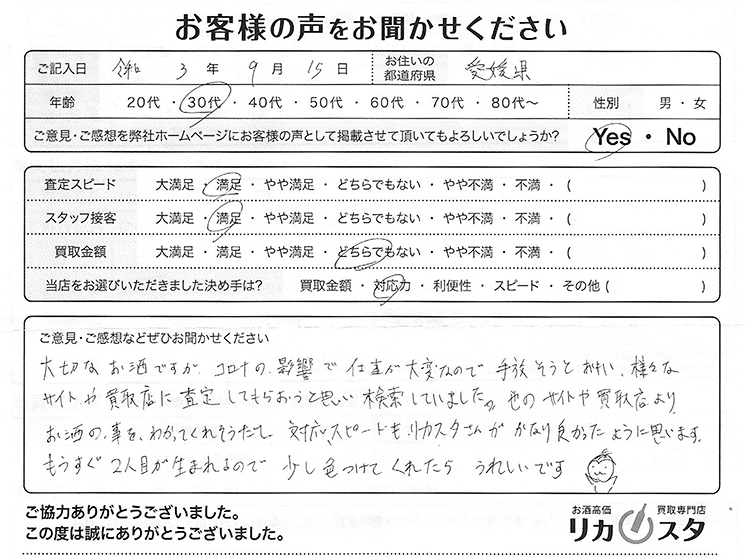 お客様の声をお聞かせください
ご記入日 令和 3 年 9 月 15 日 お住いの都道府県 愛媛県
年齢 20代 ・ 30代 ・ 40代 ・ 50代 ・ 60代 ・ 70代 ・ 80代〜 性別 男 ・ 女
ご意見・ご感想を弊社ホームページにお客様の声として掲載させて頂いてもよろしいでしょうか? Yes ・ No
査定スピード 大満足 ・ 満足 ・ やや満足 ・ どちらでもない ・ やや不満 ・ 不満 ・ ( )
スタッフ接客 大満足 ・ 満足 ・ やや満足 ・ どちらでもない ・ やや不満 ・ 不満 ・ ( )
買取金額 大満足 ・ 満足 ・ やや満足 ・ どちらでもない ・ やや不満 ・ 不満 ・ ( )
当店をお選びいただきました決め手は? 買取金額 ・ 対応力 ・ 利便性 ・ スピード ・ その他 ( )
ご意見・ご感想などぜひお聞かせください
大切なお酒ですが、コロナの影響で仕事が大変なので手放そうとおもい、様々な
サイトや買取店に査定してもらおうと思い検索していました。他のサイトや買取店より
お酒の事を、わかってくれそうだし 対応、スピードも、リカスタさんがかなり良かったように思います。
もうすぐ2人目が生まれるので 少し色つけてくれたら うれしいです
ご協力ありがとうございました。
この度は誠にありがとうございました。
お酒高価 買取専門店
リカスタ